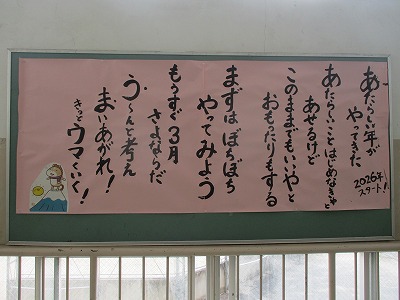 あたらしい年が
やってきた
あたらしいことはじめなきゃと
あせるけど
このままでもいいやと
おもったりもする
まずはぼちぼち
やってみよう
もうすぐ3月
さよならだ
う〜んと考え
まいあがれ!
きっとウマくいく!
2026年
スタート!